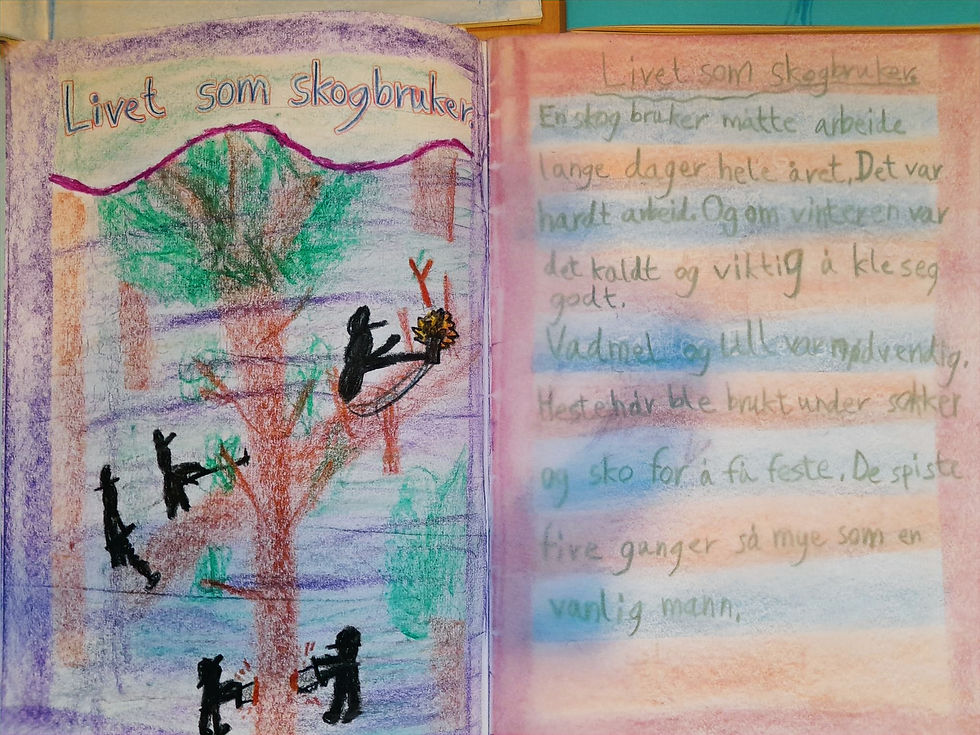 Livet som skogbruker
Livet som skogbruker.
En skog bruker måtte arbeide
lange dager hele året. Det var
hardt arbeid. Og om vinteren var
det kaldt og viktig å kle seg
godt.
Vadmel og Ull var nødvendig.
Hestehår ble brukt under sokker
og sko for å få feste. De spiste
five ganger så mye som en
vanlig mann.